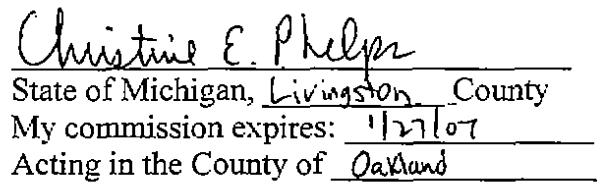 Christine E. Phelps
State of Michigan, Livingston County
My commission expires: 1/27/07
Acting in the County of Oakland